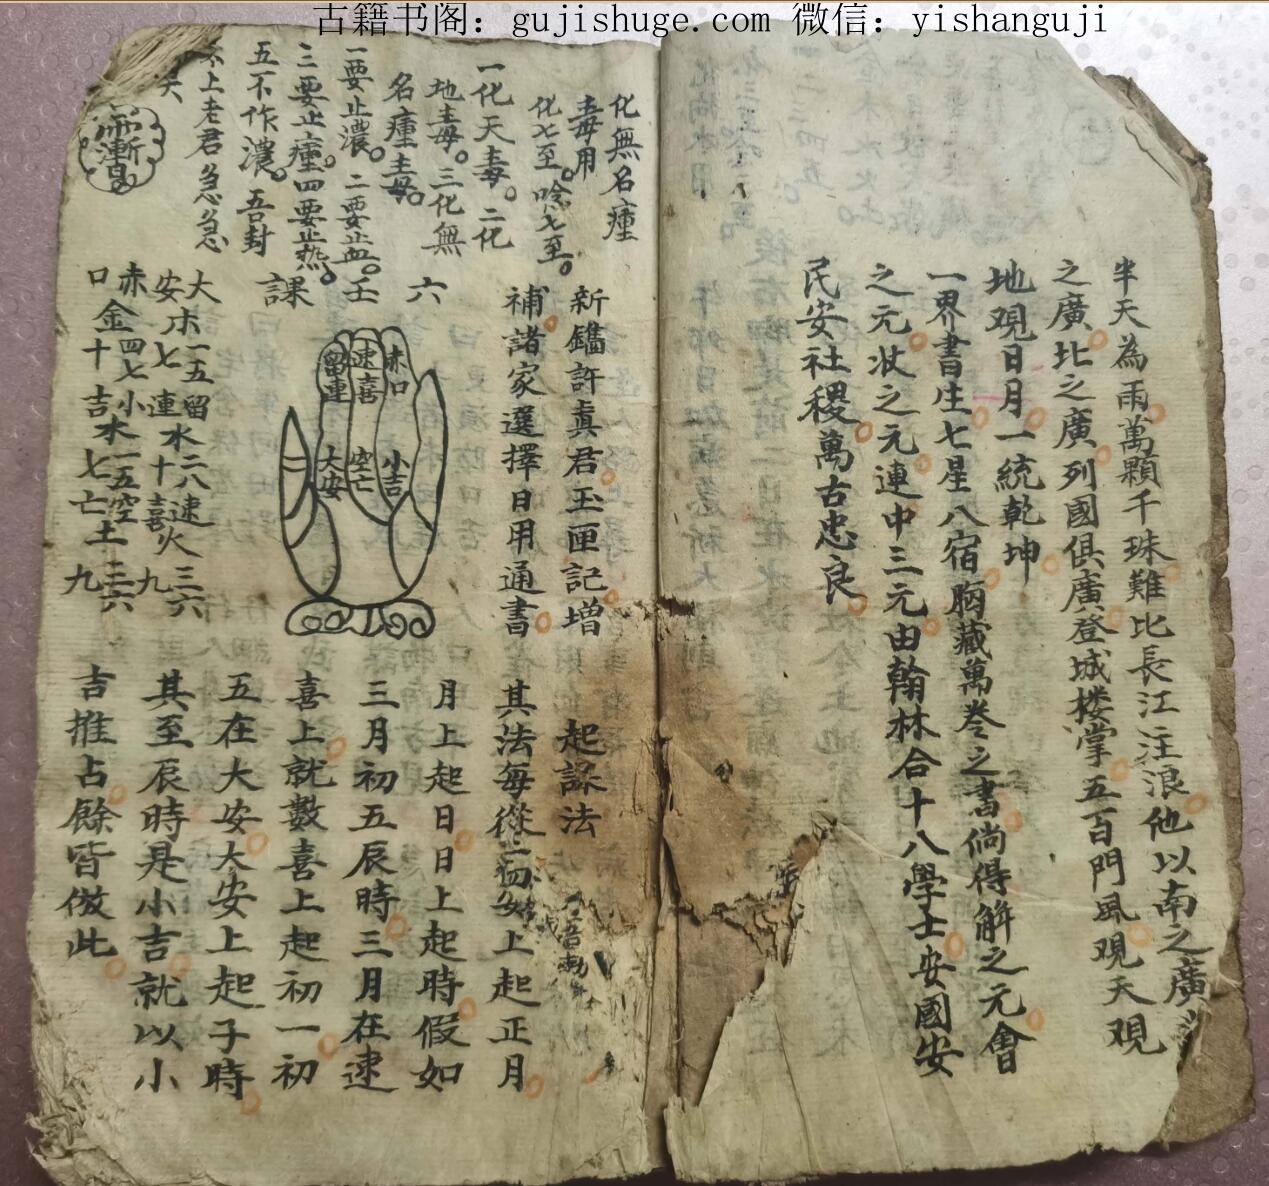 古籍书阁：gujishuge.com 微信：yishanguji
半天為雨萬顆千珠難比長江注浪他以南之廣
之廣北之廣列國俱廣登城楼掌五百門風观天观
地观日月一統乾坤
一界書生七星八宿胸藏萬卷之書倘得解之元會
之元状之元連中三元由翰林合十八學士安國安
民安社稷萬古忠良
化無名瘇
毒用
化七至唸七至
一化天毒二化
地毒三化無
名瘇毒
一要止濃二要止血
三要止瘇四要止热
五不作濃吾封
太上老君急急
六壬課
留連
速喜
赤口
大安
空亡
小吉
大安木一五
留連水二八
速喜火三六九
赤口金四七十
小吉木一五七
空亡土三六九
新鐫許真君玉匣記增
補諸家選擇日用通書
起課法
其法每從上起正月
月上起日日上起時假如
三月初五辰時三月在速
喜上就數喜上起初一初
五在大安大安上起子時
其至辰時是小吉就以小
吉推占餘皆倣此